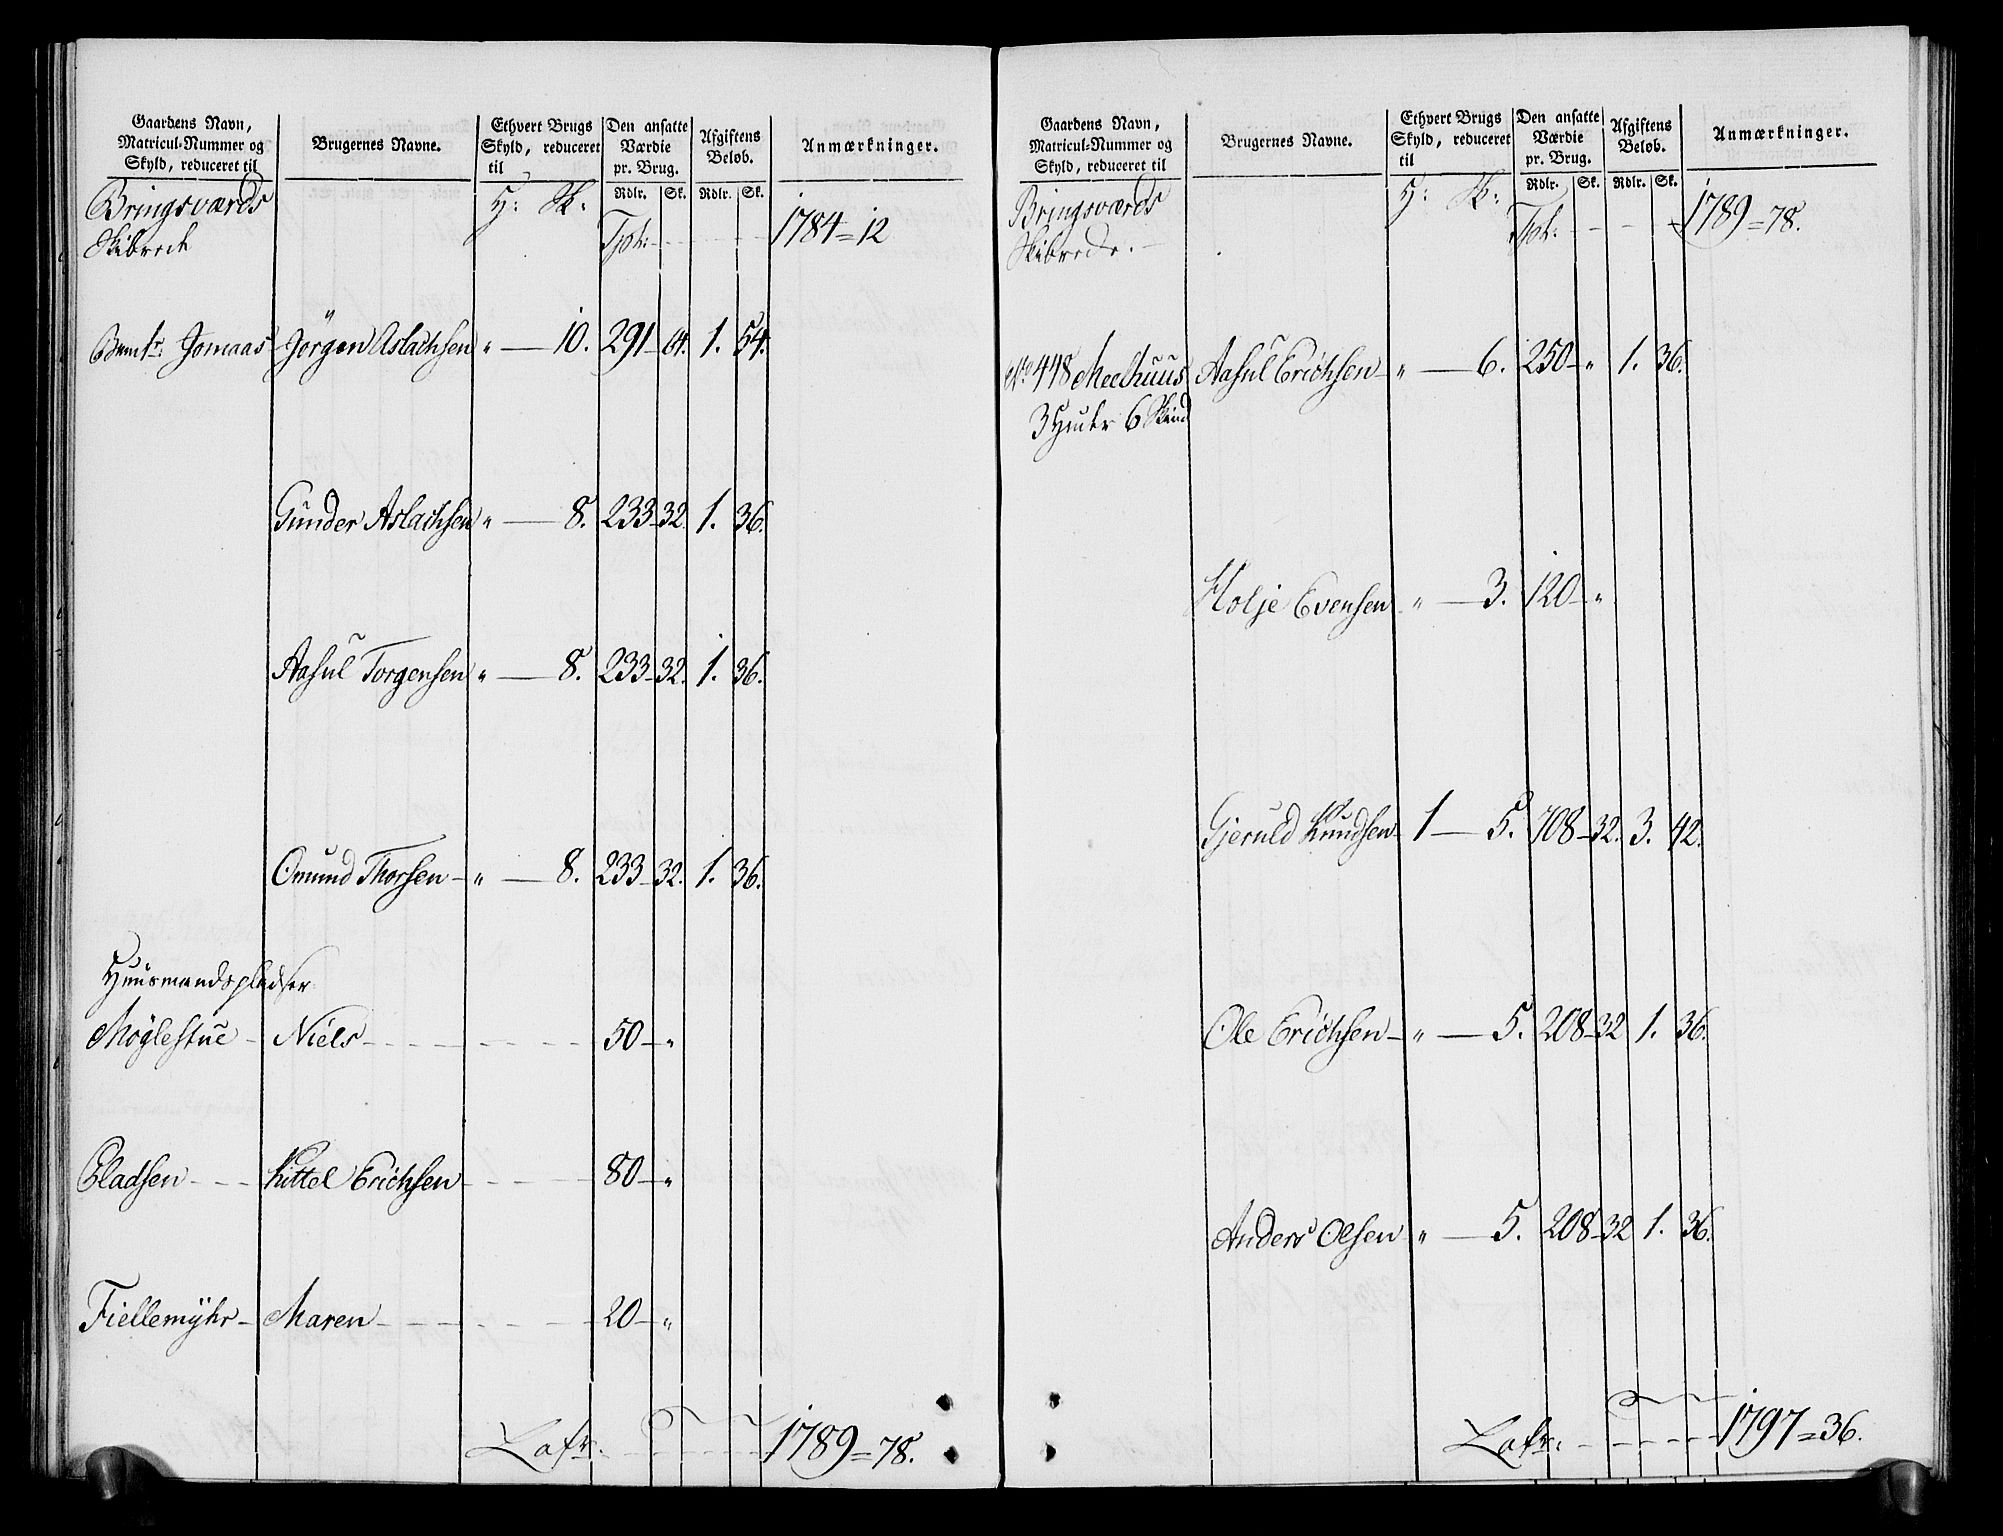 Gaardens Navn,
Matricul-Nummer og
Skyld, reduceret til
Brugernes Navne.
Ethvert Brugs
Skyld, reduceret
til
Den ansatte
Værdie
pr. Brug.
Rdlr. Sk.
Afgiftens
Beløb.
Rdlr. Sk.
Anmærkninger.
Bringsværds H: Sk:
Skibrede Tpt: 1784=12
Jomaas Jörgen Aslachsen „ — 10. 291 — 64. 1. 54.
Gunder Aslachsen „ — 8. 233 — 32. 1. 36.
Aasul Torgensen „ — 8. 233 — 32. 1. 36.
Omund Thorsen — „ — 8. 233 — 32. 1. 36.
Huusmandspladser
Möglestue — Niels 50 — „
Pladsen Kittel Erichsen 80 — „
Fiellemyhr — Maren 20 — „
Latr: 1789=78.
Gaardens Navn,
Matricul-Nummer og
Skyld, reduceret til
Brugernes Navne.
Ethvert Brugs
Skyld, reduceret
til
Den ansatte
Værdie
pr. Brug.
Rdlr. Sk.
Afgiftens
Beløb.
Rdlr. Sk.
Anmærkninger.
Bringsværds H: Sk:
Skibrede. Tpt: 1789=78.
No 448 Meelhuus Aasul Erichsen — „ — 6. 250 — „ 1. 36.
3 Huder 6 Skind
Holje Evensen „ — 3. 120 — „
Gjeruld Knudsen 1 — 5. 708 — 32. 3. 42.
Ole Erichsen — „ — 5. 208 — 32 1. 36.
Anders Olsen „ — 5. 208 — 32 1. 36.
Latr: 1797=36.